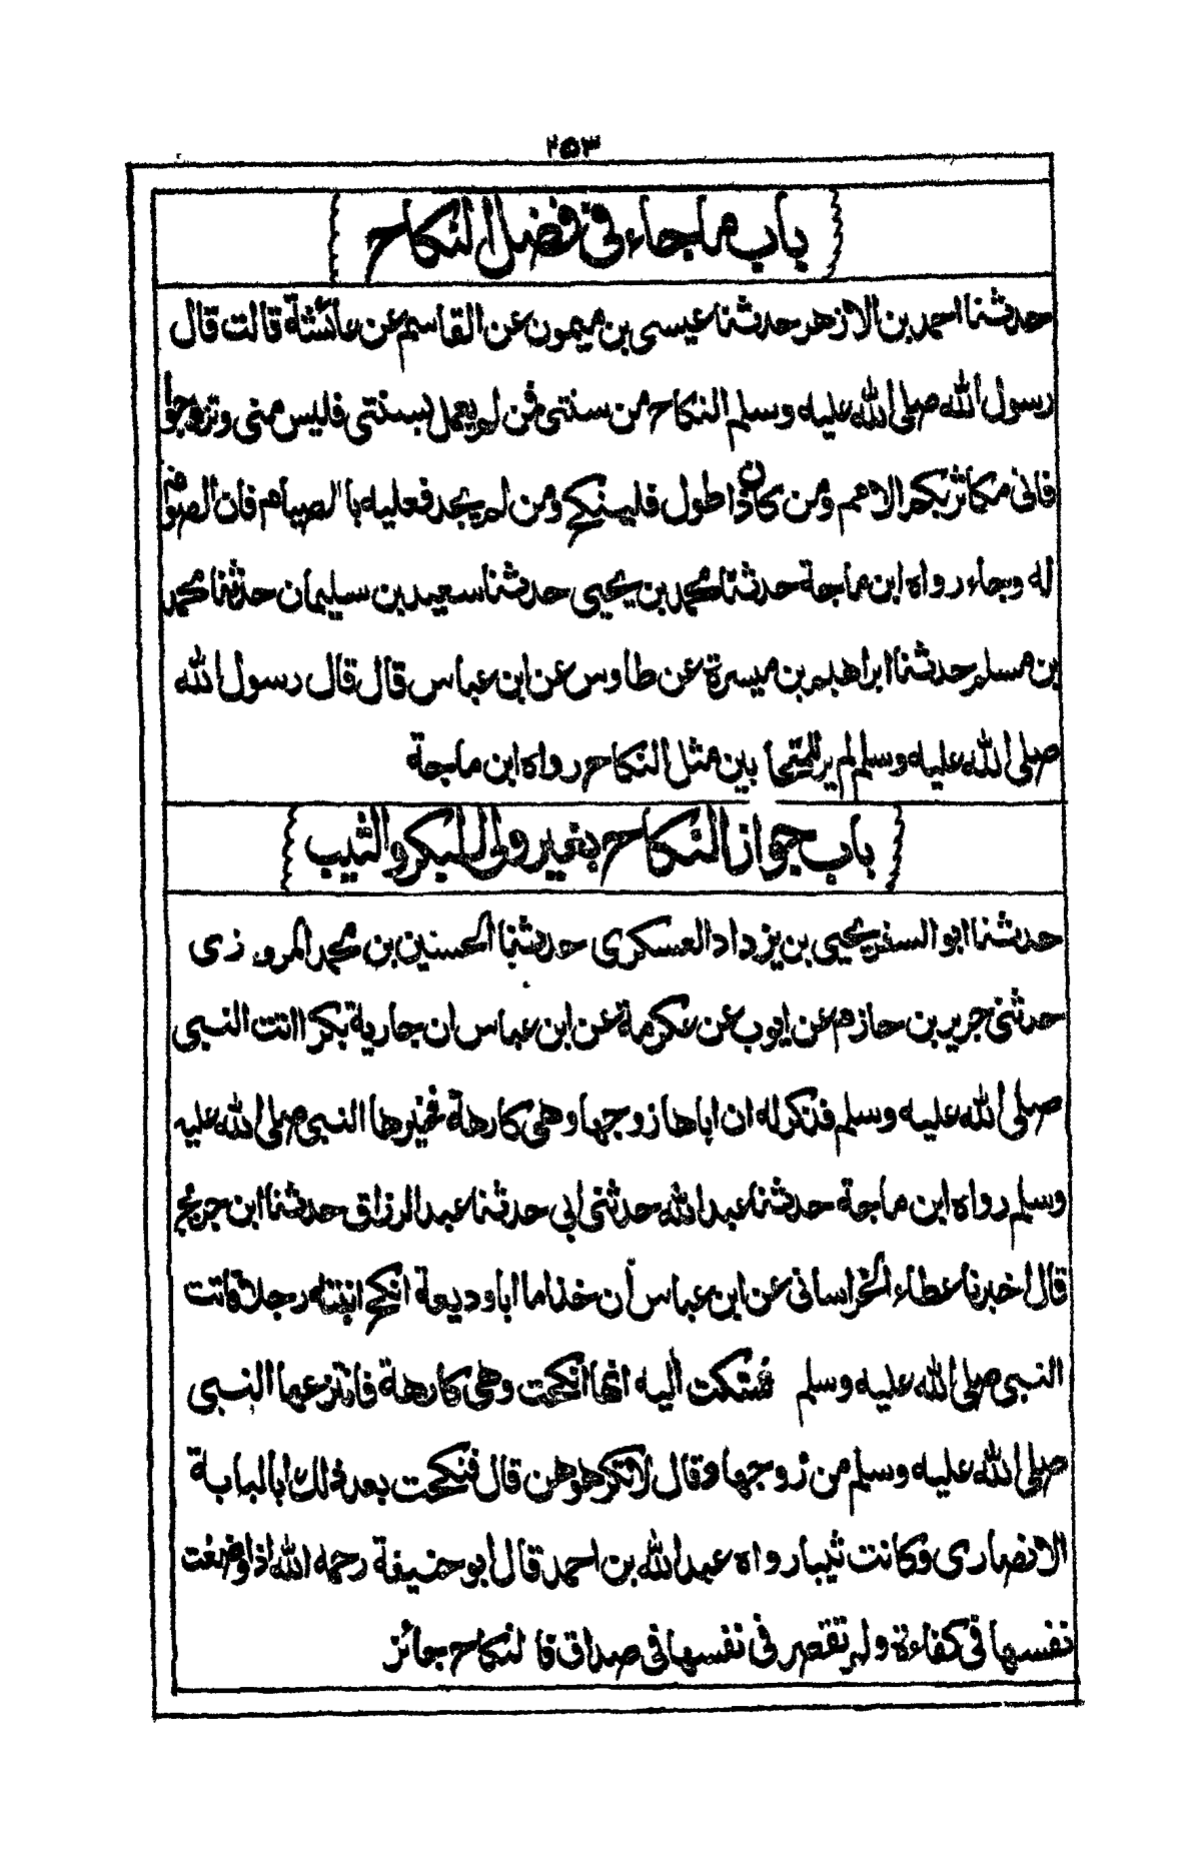 ۲۵۳
باب ما جاء في فضل النكاح
حدثنا احمد بن الازهر حدثنا عيسى بن ميمون عن القاسم عن عائشة قالت قال
رسول الله صلى الله عليه وسلم النكاح من سنتى فمن لم يعمل بسنتى فليس منى وتزوجوا
فانى مكاثر بكم الامم ومن كان ذا طول فلينكح ومن لم يجد فعليه بالصيام فان الصوم
له وجاء رواه ابن ماجة حدثنا محمد بن يحيى حدثنا سعيد بن سليمان حدثنا محمد
بن مسلم حدثنا ابراهيم بن ميسرة عن طاوس عن ابن عباس قال قال رسول الله
صلى الله عليه وسلم لم ير للمتحابين مثل النكاح رواه ابن ماجة
باب جواز النكاح بغير ولى للبكر والثيب
حدثنا ابو السقر يحيى بن يزداد العسكرى حدثنا الحسنين بن محمد المروزى
حدثنى جرير بن حازم عن ايوب عن عكرمة عن ابن عباس ان جارية بكرا اتت النبى
صلى الله عليه وسلم فذكر له ان اباها زوجها وهى كارهة فخيرها النبى صلى الله عليه
وسلم رواه ابن ماجة حدثنا عبد الله حدثنى ابى حدثنا عبد الرزاق حدثنا ابن جريج
قال اخبرنا عطاء الخراسانى عن ابن عباس أن خذاما ابا وديعة انكح ابنته رجلا فاتت
النبى صلى الله عليه وسلم فشكت اليه انها انكحت وهى كارهة فانتزعها النبى
صلى الله عليه وسلم من زوجها وقال لا تكرهوهن قال فنكحت بعد ذلك ابا لبابة
الانصارى وكانت ثيبا رواه عبد الله بن احمد قال ابو حنيفة رحمه الله اذا وضعت
نفسها فى كفاءة ولم تقصر فى نفسها فى صداق فا لنكاح جائز